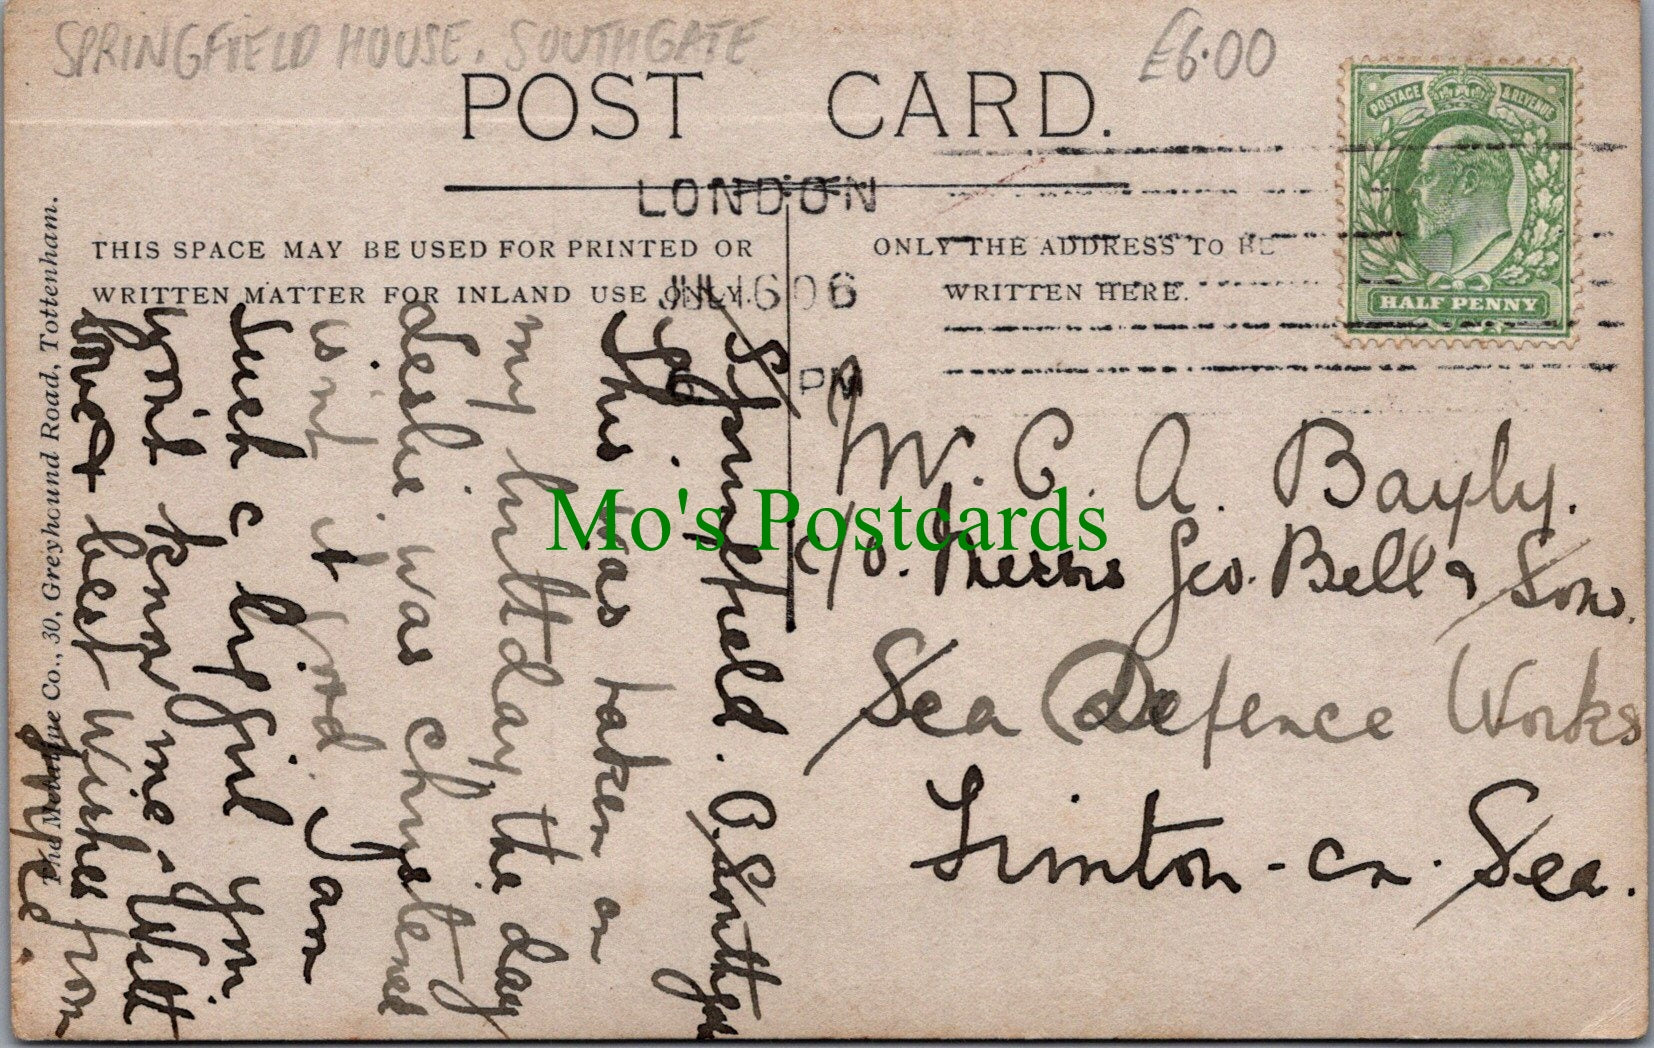 SPRINGFIELD HOUSE. SOUTHGATE
£6.00
POST CARD.
POSTAGE & REVENUE
HALF PENNY
LONDON
JUL 16 06
6 PM
THIS SPACE MAY BE USED FOR PRINTED OR
WRITTEN MATTER FOR INLAND USE ONLY.
ONLY THE ADDRESS TO BE
WRITTEN HERE.
The Metatine Co., 30, Greyhound Road, Tottenham.
Springfield.
This was taken on
my birthday, the day
Leslie was christened
isnt it good. I am
such a big girl you
wont know me. With
love & best wishes from
Mr. C. A. Bayly.
c/o. Messrs Geo. Bell & Sons.
Sea Defence Works
Frinton-on-Sea.
Mo's Postcards